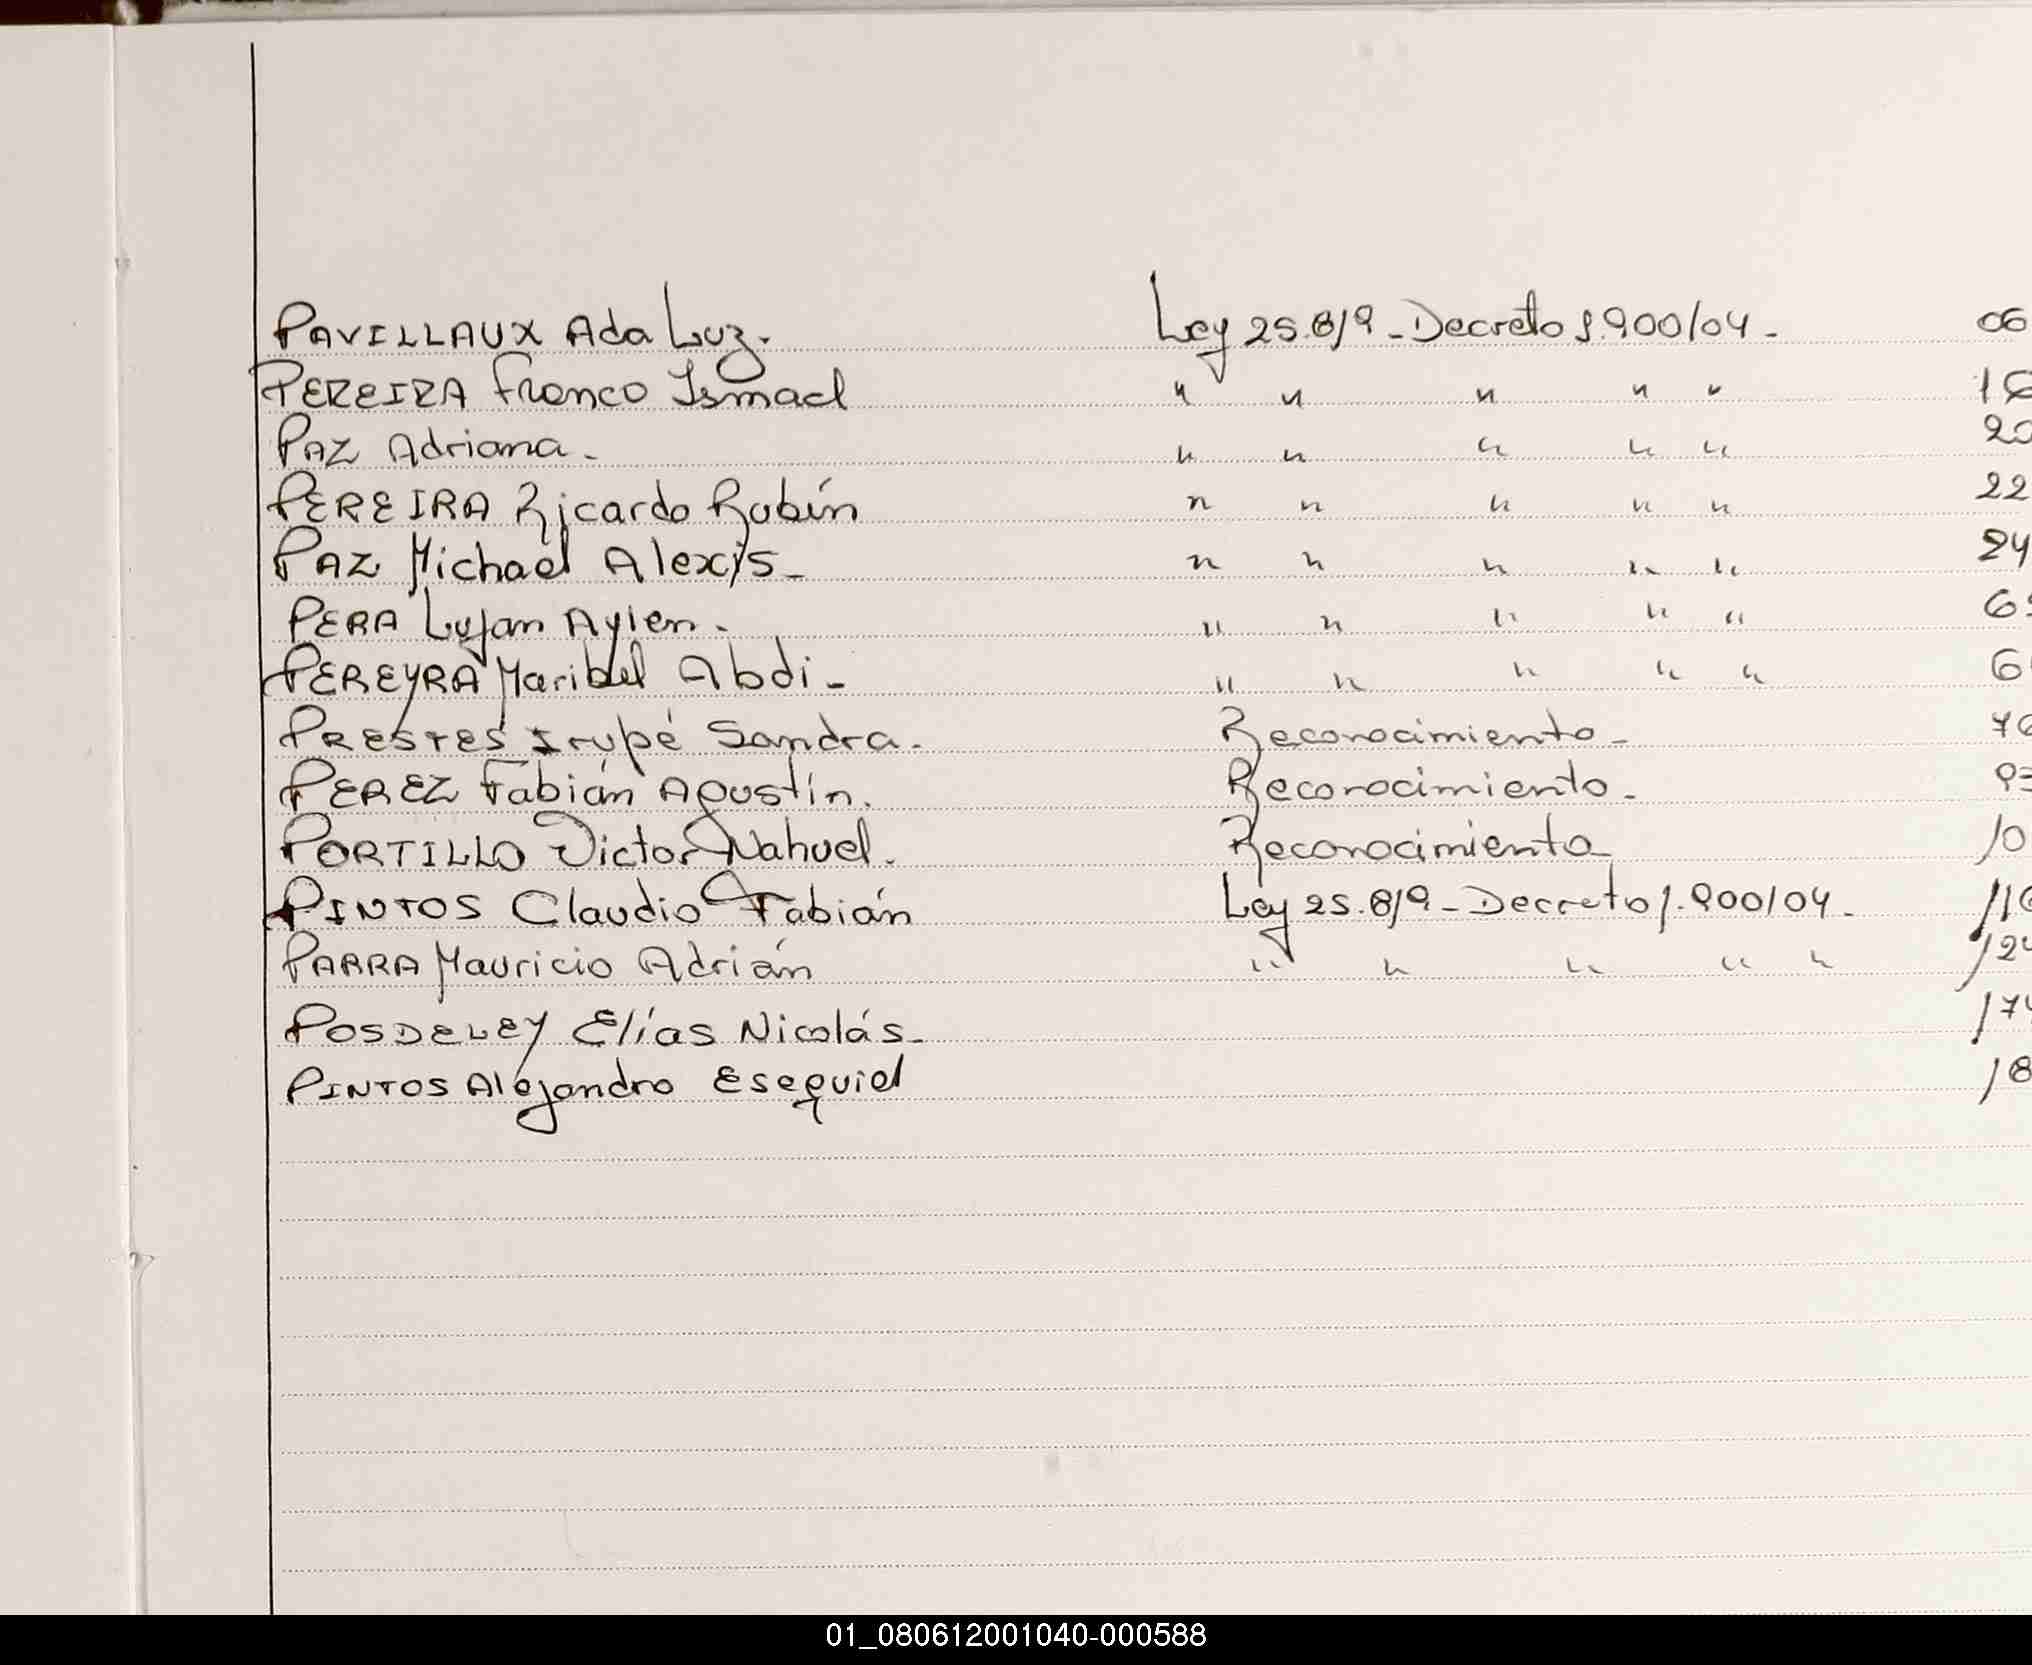 PAVILLAUX Ada Luz. Ley 25.819 - Decreto 1.900/04 - 06
PEREIRA Franco Ismael " " " " "
PAZ Adriana - " " " " " 20
PEREIRA Ricardo Rubén " " " " " 22
PAZ Michael Alexis - " " " " " 24
PERA Lujan Aylen. " " " " "
PEREYRA Maribel Abdi - " " " " "
PRESTES Irupé Sandra. Reconocimiento -
PEREZ Fabián Agustín. Reconocimiento -
PORTILLO Victor Nahuel. Reconocimiento 10
PINTOS Claudio Fabián Ley 25.819 - Decreto 1.900/04 -
PARRA Mauricio Adrián " " " " "
POSDELEY Elías Nicolás -
PINTOS Alejandro Esequiel 18
01_080612001040-000588